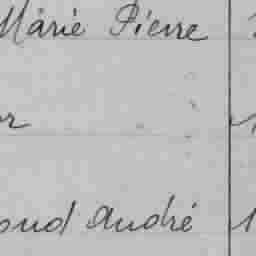 Marie Pierre
or
ond André